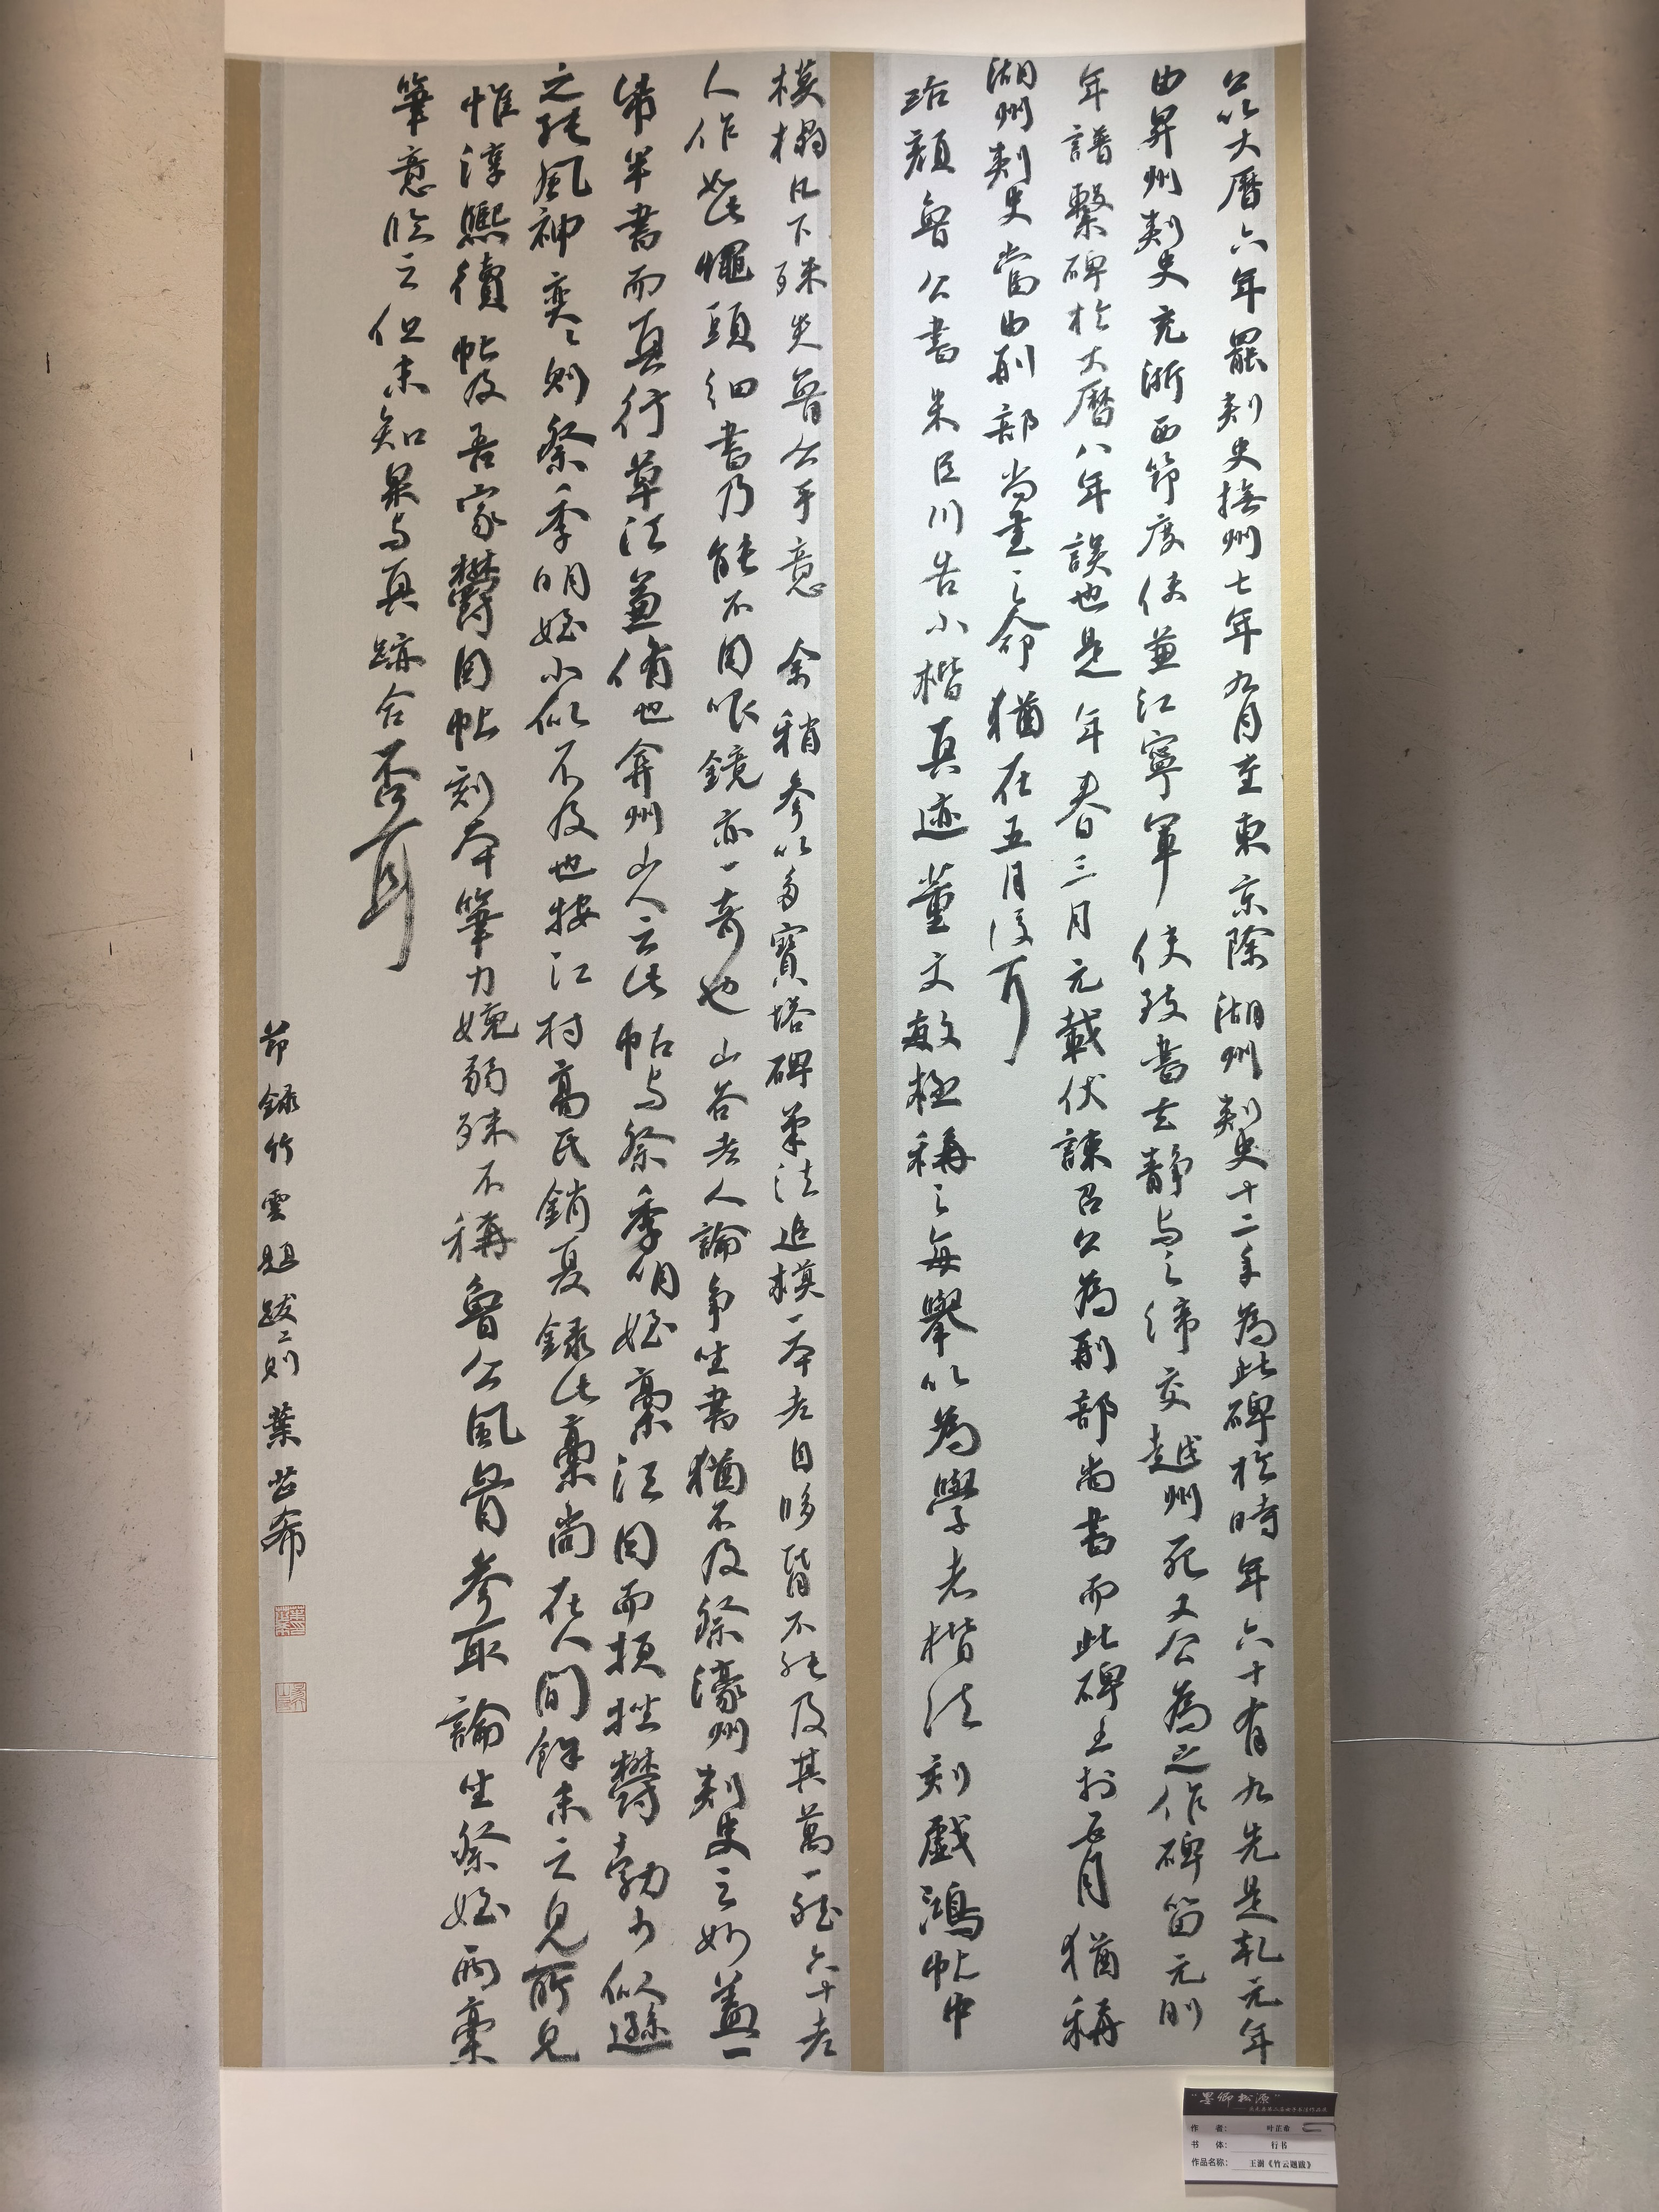 公以大曆六年罷刺史撫州七年九月至東京除湖州刺史十二年為此碑於時年六十有九先是乾元年
由昇州刺史充浙西節度使兼江寧軍使致書玄靜与之締交越州死又公為之作碑留元剛
年譜繫碑於大曆八年誤也是年春三月元載伏誅召公為刑部尚書而此碑立於五月猶稱
湖州刺史當由刑部尚書之命猶在五月後耳
珀顏魯公書朱巨川告小楷真迹董文敏極稱之每舉以為學者楷法刻戲鴻帖中
模榻凡下殊失魯公手意余稍參以多寶塔碑筆法追模一本老目眵昏不能及其萬一然六十老
人作此蠅頭細書乃能不用眼鏡亦一奇也山谷老人論爭坐書猶不及祭濠州刺史之妙蓋一
紙半書而真行草法兼備也弇州山人云此帖与祭季明姪稾法同而頓挫鬱勃少似遜
之然風神奕奕則祭季明姪小似不及也按江村高氏銷夏録此稾尚在人間余未之見所見
惟淳熙續帖及吾家鬱岡帖刻本筆力婉弱殊不稱魯公風骨參取論坐祭姪兩稾
筆意臨之但未知果与真跡合否耳
節録竹雲題跋二則 葉芷希
"墨鄉松源"
作 者: 叶芷希
书 体: 行书
作品名称: 王澍《竹云题跋》